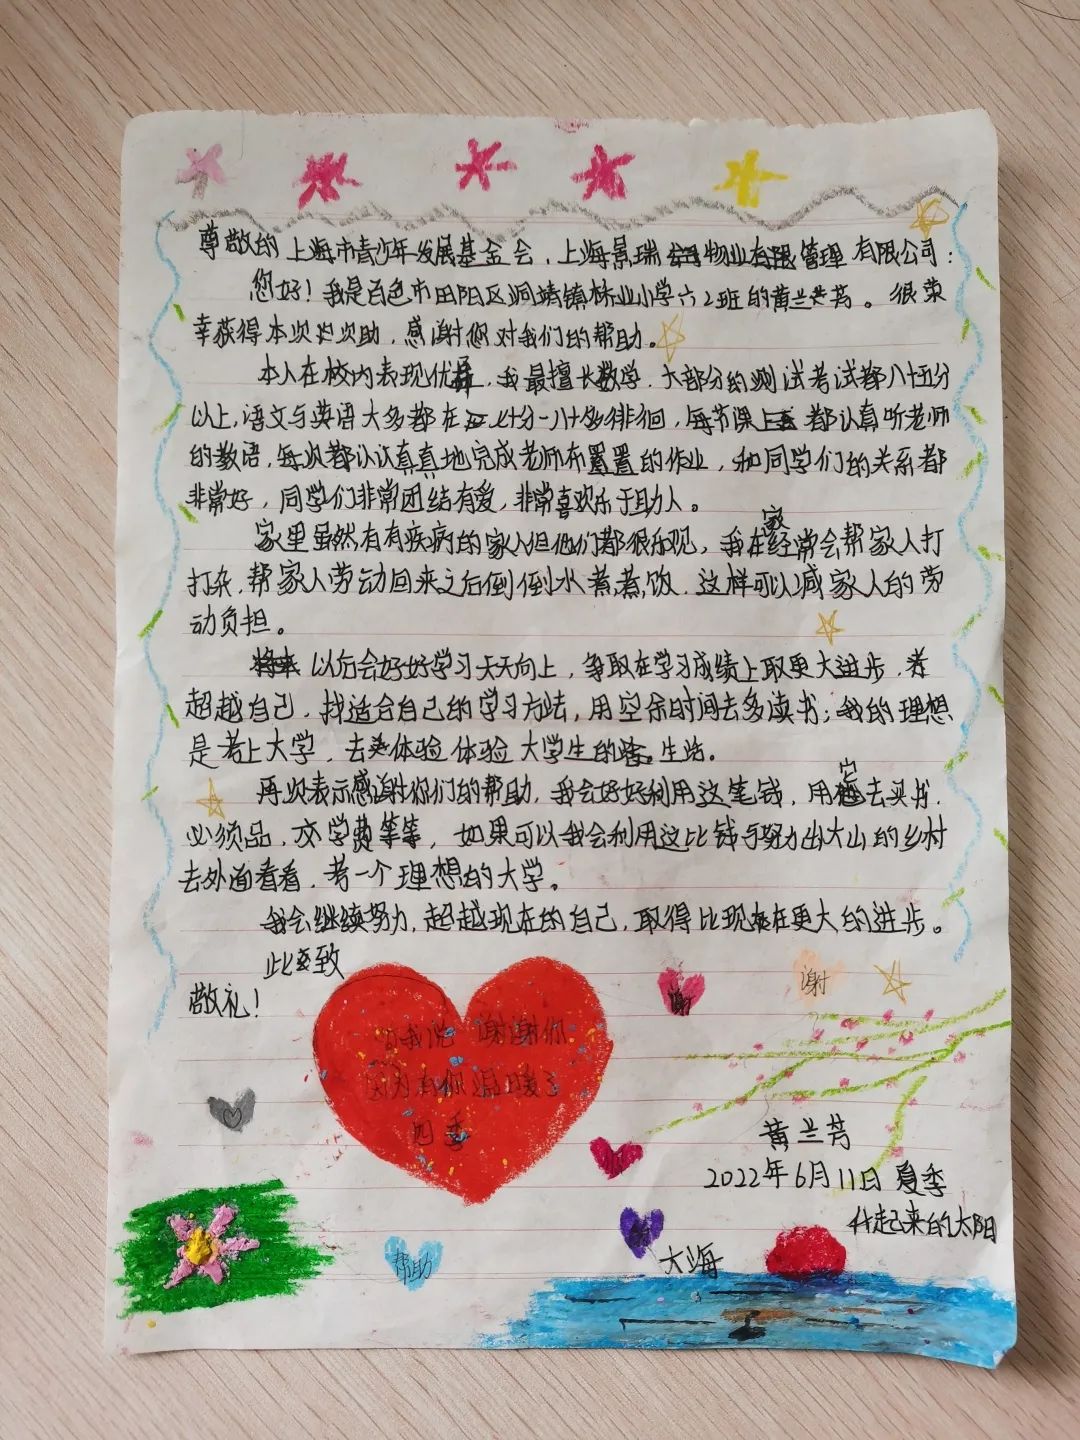 尊敬的上海市青少年发展基金会、上海景瑞物业管理有限公司:
您好!我是百色市田阳区洞靖镇林业小学六2班的黄兰芳。很荣
幸获得本次次助,感谢您对我们的帮助。
本人在校内表现优异,我最擅长数学,大部分的测试考试都八十五分
以上,语文与英语大多都在七十分-八十多徘徊,每节课都认真听老师
的教语,每次都认认真真地完成老师布置的作业,和同学们的关系都
非常好,同学们非常团结有爱,非常喜欢乐于助人。
家里虽然有有疾病的家人但他们都很乐观,我在家经常会帮家人打
打杂,帮家人劳动回来之后倒倒水煮煮饭,这样可以减家人的劳
动负担。
以后会好好学习天天向上,争取在学习成绩上取更大进步,
超越自己,找适合自己的学习方法,用空余时间去多读书;我的理想
是考上大学,去体验体验大学生的生活。
再次表示感谢你们的帮助,我会好好利用这笔钱,用它去买书,
必须品,交学费等等,如果可以我会利用这比钱与努力出大山的乡村
去外面看看,考一个理想的大学。
我会继续努力,超越现在的自己,取得比现在更大的进步。
此致
敬礼!
谢
谢
对我说 谢谢你
因为有你温暖了
四季
黄兰芳
2022年6月11日 夏季
升起来的太阳
大海
帮助